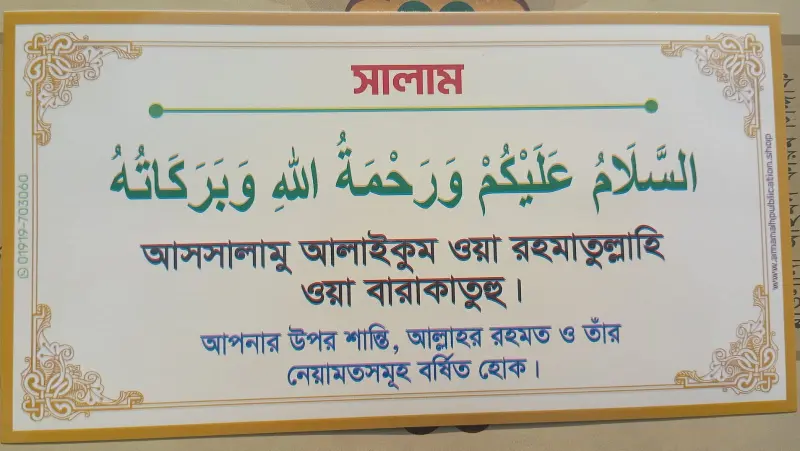 সালাম
السَّلَامُ عَلَيْكُمْ وَرَحْمَةُ اللهِ وَبَرَكَاتُهُ
আসসালামু আলাইকুম ওয়া রহমাতুল্লাহি
ওয়া বারাকাতুহু।
আপনার উপর শান্তি, আল্লাহর রহমত ও তাঁর
নেয়ামতসমূহ বর্ষিত হোক।
01919-703060
www.amanahpublication.shop